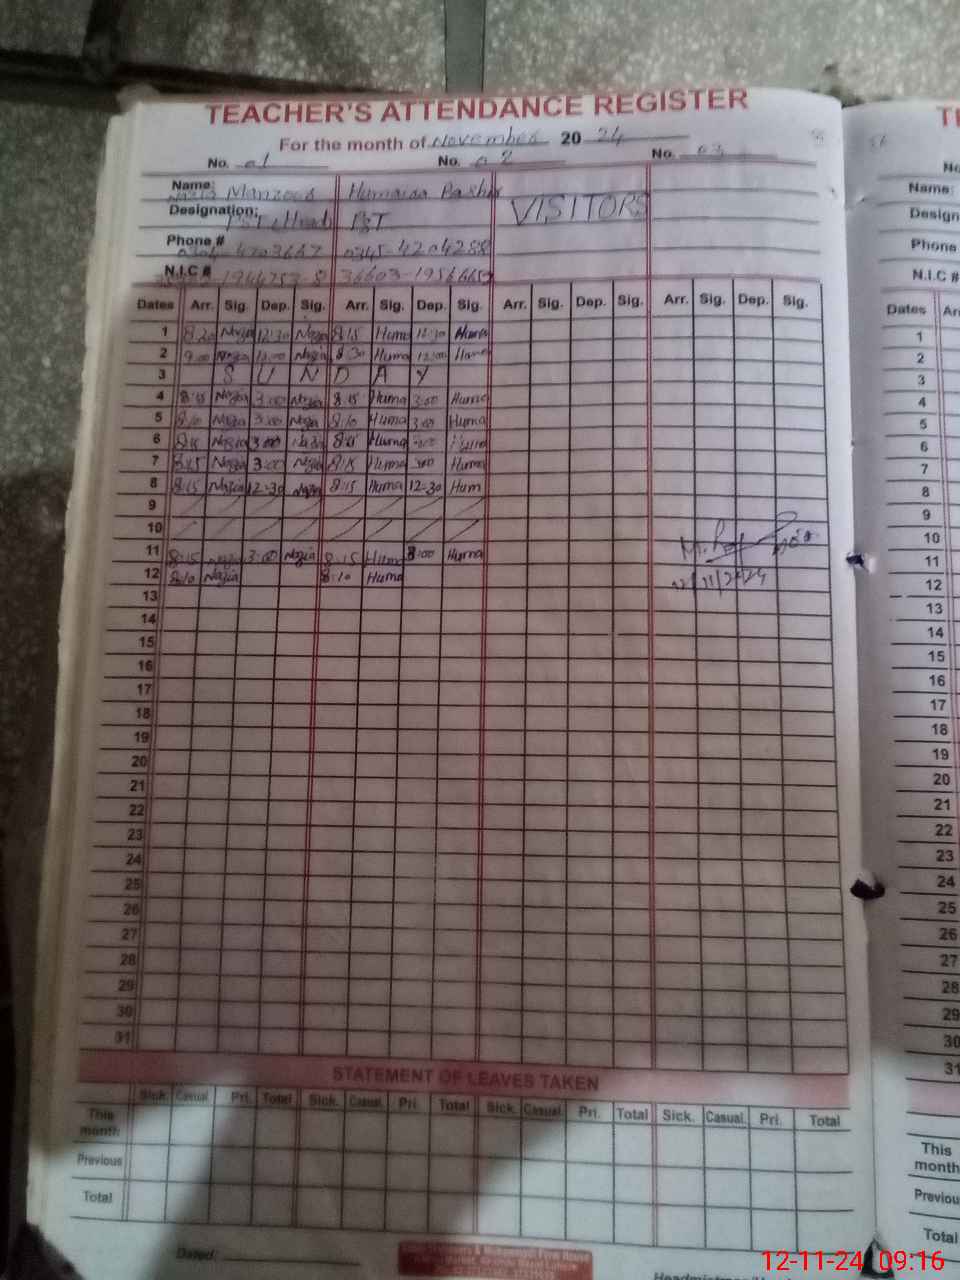 TEACHER'S ATTENDANCE REGISTER
For the month of November 20 24
No. 01 No. 02 No. 03
Name: Nazia Manzoor Humaira Bashir
VISITORS
Designation: PST/Head PST
Phone # 0345-4204288
N.I.C #
Dates Arr. Sig. Dep. Sig. Arr. Sig. Dep. Sig. Arr. Sig. Dep. Sig. Arr. Sig. Dep. Sig.
1 8:20 Nazia 12:30 Nazia 8:15 Huma 12:30 Huma
2 9:00 Nazia 12:00 Nazia 8:30 Huma 12:00 Huma
3 S U N D A Y
4 8:15 Nazia 3:00 Nazia 8:15 Huma 3:00 Huma
5 8:10 Nazia 3:00 Nazia 8:10 Huma 3:00 Huma
6 8:15 Nazia 3:00 Nazia 8:15 Huma 3:00 Huma
7 8:15 Nazia 3:00 Nazia 8:15 Huma 3:00 Huma
8 8:15 Nazia 12:30 Nazia 8:15 Huma 12:30 Hum
9
10
11 8:15 Nazia 3:00 Nazia 8:15 Huma 3:00 Huma
12 8:10 Nazia 8:10 Huma 12/11/2024
13
14
15
16
17
18
19
20
21
22
23
24
25
26
27
28
29
30
31
STATEMENT OF LEAVES TAKEN
Sick. Casual. Pri. Total Sick. Casual. Pri. Total Sick. Casual. Pri. Total Sick. Casual. Pri. Total
This month
Previous
Total
Dated:
No.
Name:
Design
Phone
N.I.C #
Dates
1
2
3
4
5
6
7
8
9
10
11
12
13
14
15
16
17
18
19
20
21
22
23
24
25
26
27
28
29
30
31
This
month
Previou
Total
12-11-24 09:16